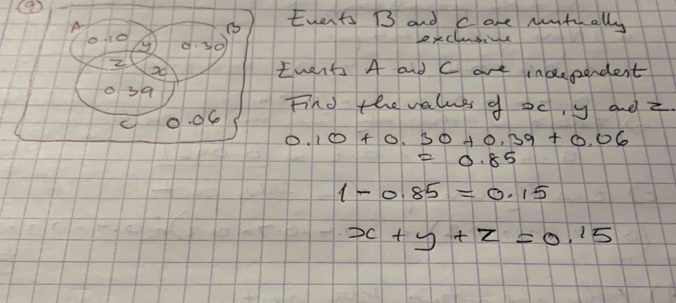 9
A
B
0.10
y
0.30
z
x
0.39
C
0.06
Events B and C are mutually
exclusive
Events A and C are independent
Find the values of x, y and z.
0.10 + 0.30 + 0.39 + 0.06
= 0.85
1 - 0.85 = 0.15
x + y + z = 0.15